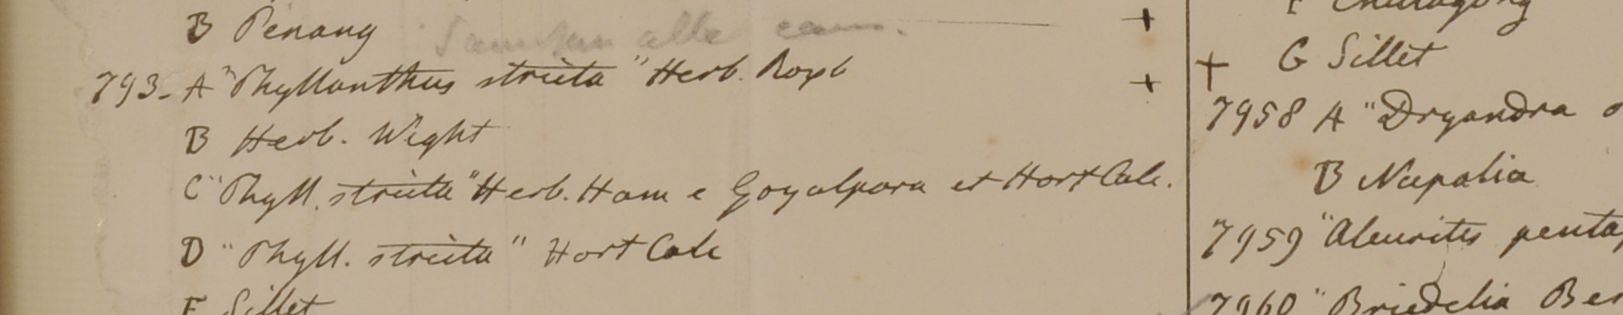 B Penang
793- A "Phyllanthus stricta" Herb. Roxb +
B Herb. Wight
C "Phyll. stricta" Herb. Ham e Goyalpara et Hort Calc.
D "Phyll. stricta" Hort Calc
E Sillet
+ G Sillet
7958 A "Dryandra
B Napalia
7959 "Aleurites penta
7960 "Briedelia Ber